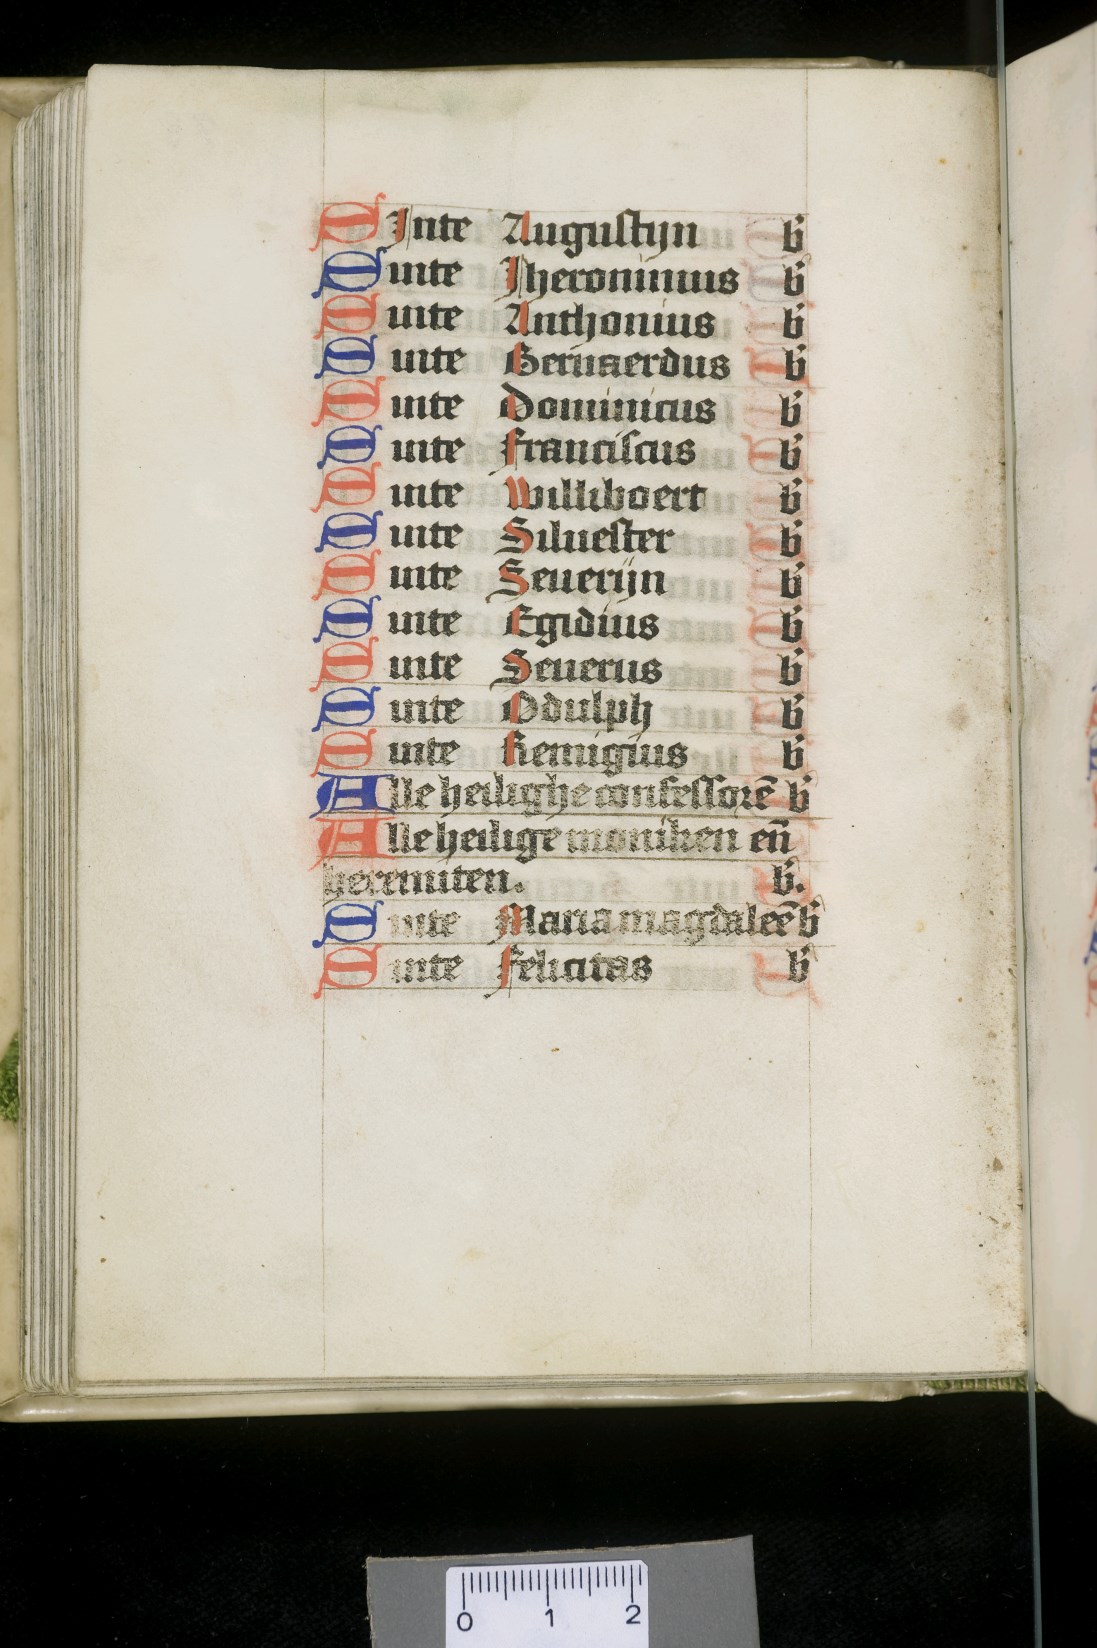 SInte Augustijn b
Sinte Jheronimus b
Sinte Anthonius b
Sinte Bernaerdus b
Sinte Dominicus b
Sinte Franciscus b
Sinte Williboert b
Sinte Siluester b
Sinte Seuerijn b
Sinte Egidius b
Sinte Seuerus b
Sinte Odulph b
Sinte Remigius b
Alle heilighe confessorē b
Alle heilige moniken eñ
heremiten. b.
Sinte Maria magdaleē b
Sinte Felicitas b
0 1 2